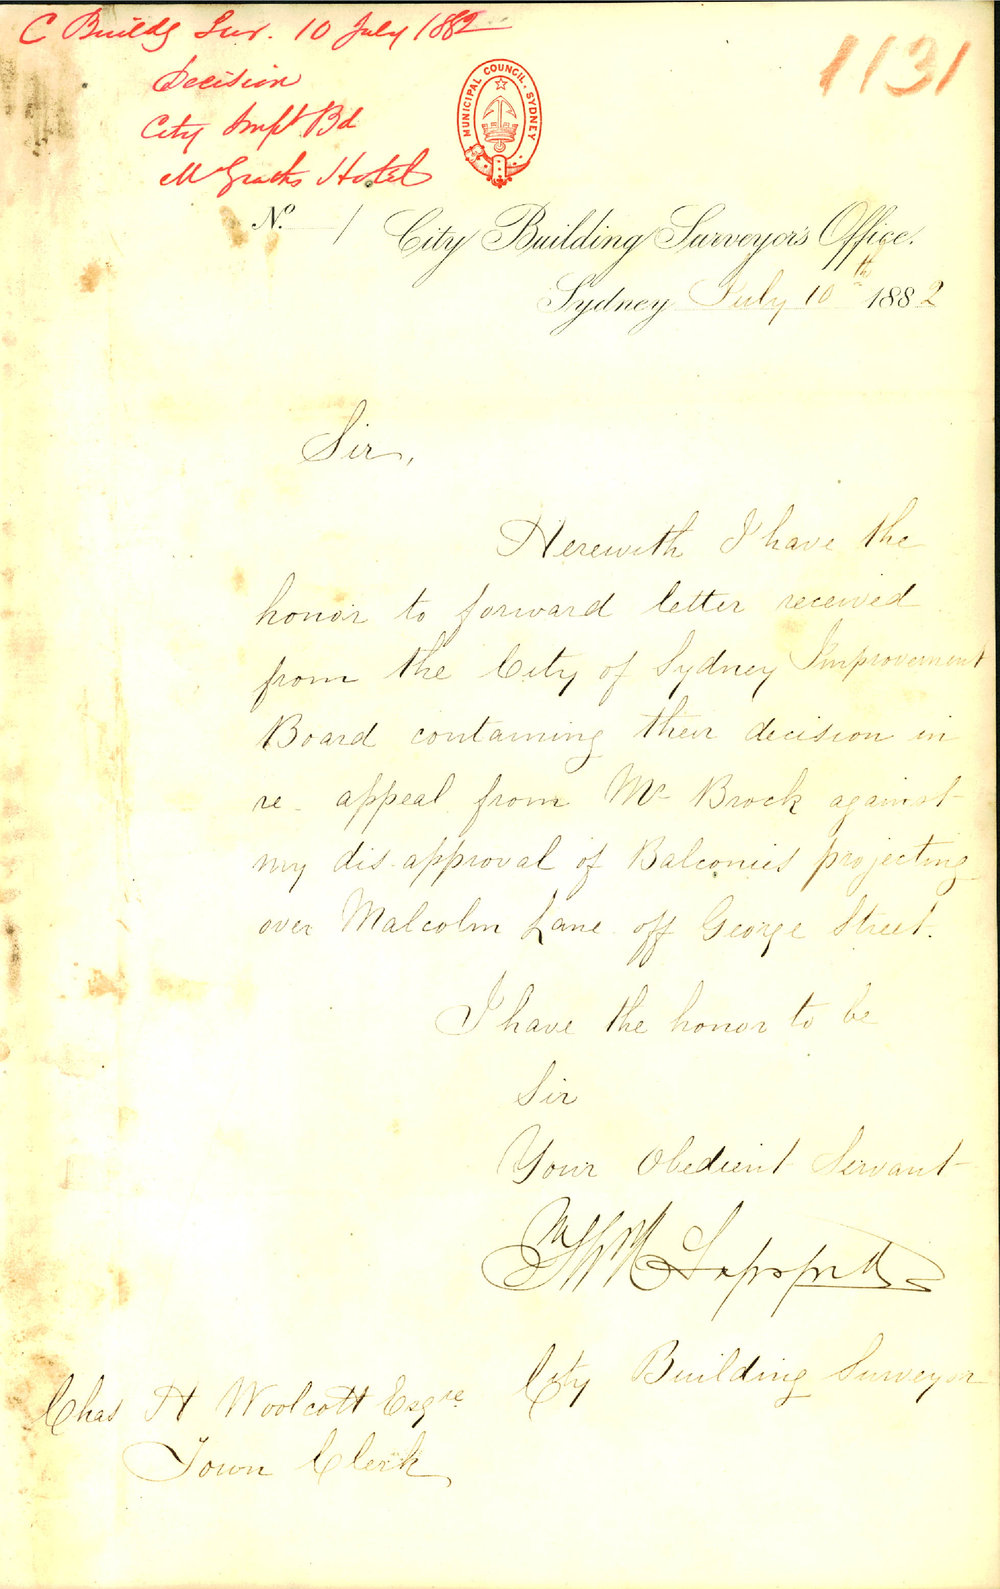 C Build<sup>g</sup> Sur. 10 July 1882
1131
Decision
City Imp<sup>t</sup> Bd
McGraths Hotel
MUNICIPAL COUNCIL. SYDNEY
No. 1
City Building Surveyor's Office.
Sydney July 10th 1882
Sir,
Herewith I have the
honor to forward letter received
from the City of Sydney Improvement
Board containing their decision in
re- appeal from Mr Brock against
my dis-approval of Balconies projecting
over Malcolm Lane off George Street.
I have the honor to be
Sir
Your Obedient Servant
City Building Surveyor
Chas H Woolcott Esqre
Town Clerk